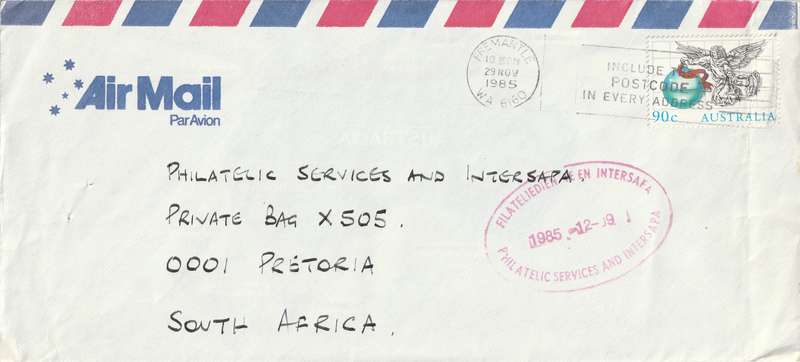 Air Mail
Par Avion
FREMANTLE
29 NOV
1985
WA 6160
INCLUDE
POSTCODE
IN EVERY ADDRESS
90c AUSTRALIA
PHILATELIC SERVICES AND INTERSAPA.
PRIVATE BAG X505.
0001 PRETORIA
SOUTH AFRICA.
EN INTERSAFA
1985 -12-09
PHILATELIC SERVICES AND INTERSAPA